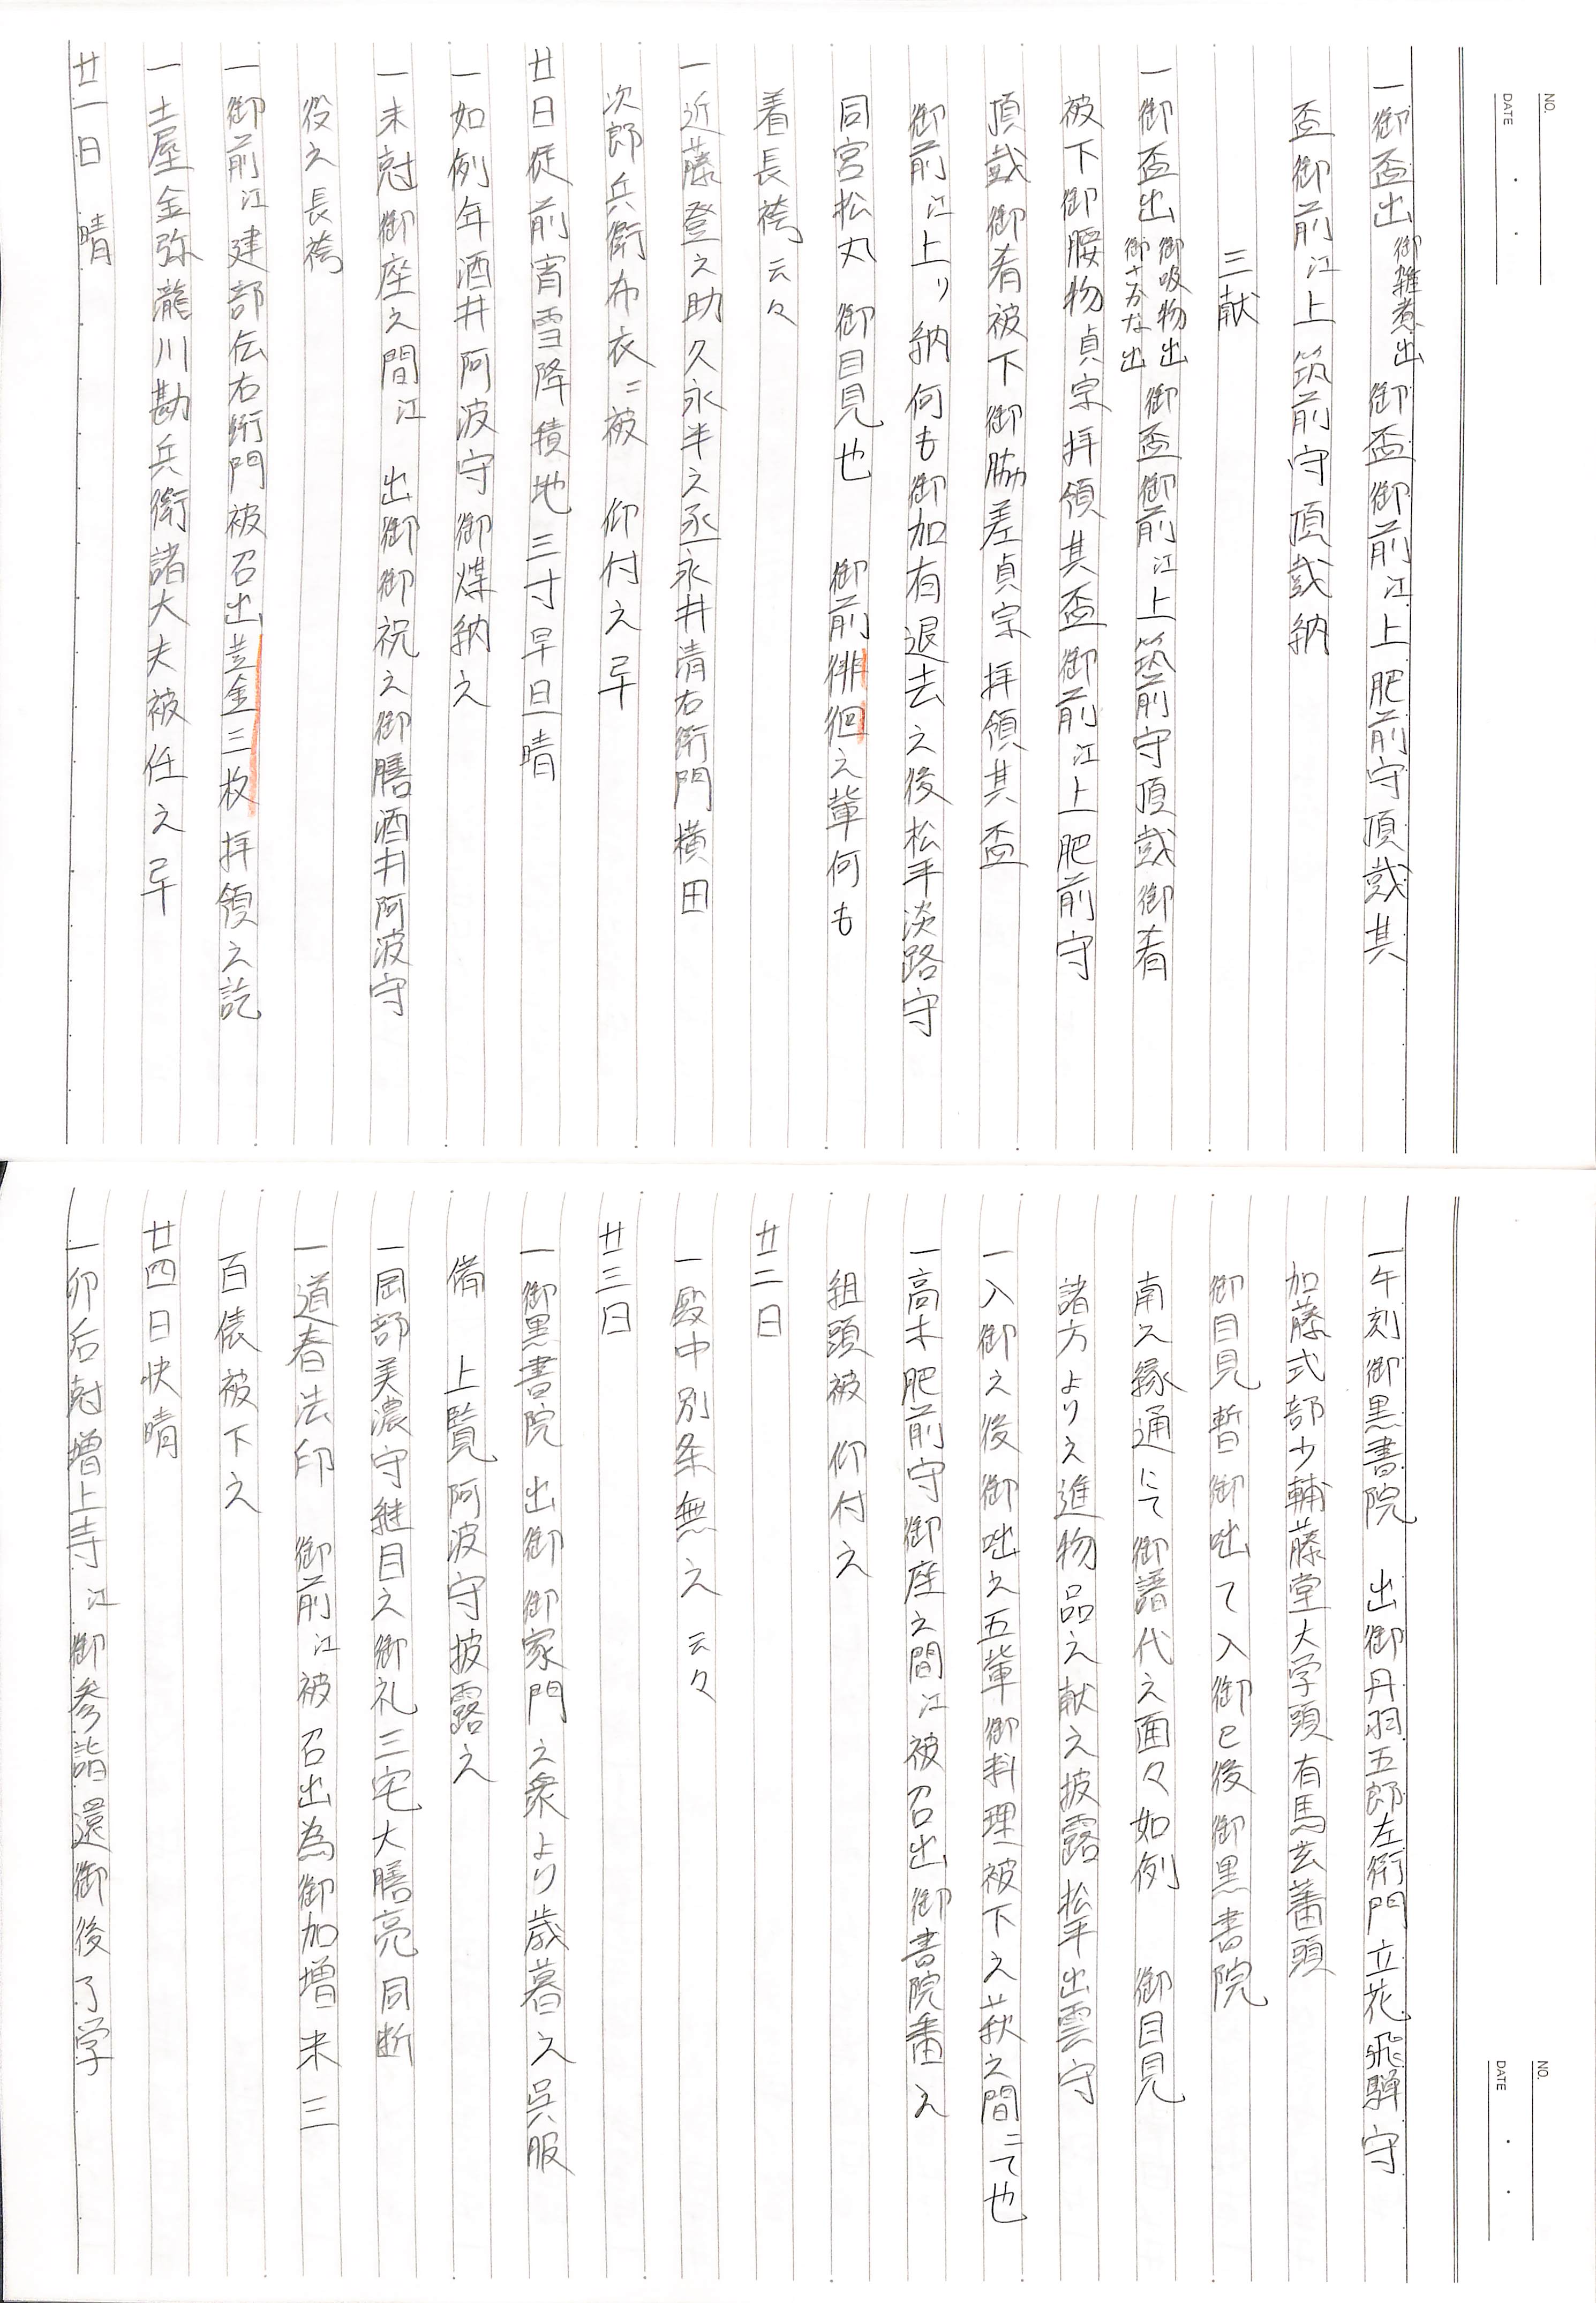 NO.
DATE
一御盃出 御雑煮出 御盃御前江上肥前守頂戴其
盃御前江上筑前守頂戴納
三献
一御盃出 御吸物出 御さかな出 御盃御前江上筑前守頂戴御肴
被下御腰物貞宗拝領其盃御前江上肥前守
頂戴御肴被下御脇差貞宗拝領其盃
御前江上リ納何も御加有退去之後松平淡路守
同宮松丸 御目見也 御前徘徊之輩何も
着長袴云々
一近藤登之助久永半之丞永井清右衛門横田
次郎兵衛布衣ニ被 仰付之畢
廿日従前宵雪降積地三寸早旦晴
一如例年酒井阿波守御煤納之
一未尅御座之間江 出御御祝之御膳酒井阿波守
役之長袴
一御前江建部伝右衛門被召出並金三枚拝領之訖
一土屋金弥瀧川勘兵衛諸大夫被任之畢
廿一日 晴
NO.
DATE
一午刻御黒書院 出御丹羽五郎左衛門立花飛騨守
加藤式部少輔藤堂大学頭有馬玄蕃頭
御目見暫御咄て入御已後御黒書院
南之縁通にて御譜代之面々如例 御目見
諸方よりえ進物品之献之披露松平出雲守
一入御之後御咄之五輩御料理被下之萩之間ニて也
一高木肥前守御座之間江被召出御書院番え
組頭被 仰付之
廿二日
一殿中別条無之云々
廿三日
一御黒書院 出御御家門之衆より歳暮之呉服
備 上覧阿波守披露之
一岡部美濃守継目之御礼三宅大膳亮同断
一道春法印 御前江被召出為御加増米三
百俵被下之
廿四日快晴
一卯后尅増上寺江御参詣還御後了学